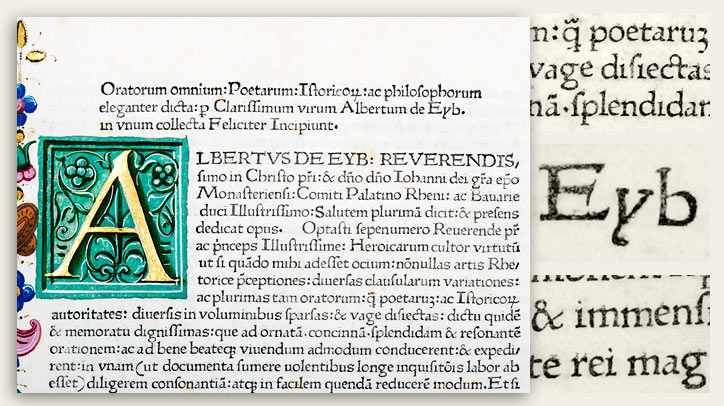 Oratorum omnium: Poetarum: Istoricoꝝ: ac philosophorum
eleganter dicta: ꝑ Clarissimum virum Albertum de Eyb.
in vnum collecta Feliciter Incipiunt.
ALBERTVS DE EYB: REVERENDIS,
simo in Christo pr̄i: & dño dño Iohanni dei gr̄a ep̄o
Monasteriensi: Comiti Palatino Rheni: ac Bauarie
duci Illustrissimo: Salutem plurimā dicit: & presens
dedicat opus. Optasti sepenumero Reuerende pr̄
ac p̄nceps Illustrissime: Heroicarum cultor virtutū
ut si quādo mihi adesset ocium: nōnullas artis Rhe,
torice p̄ceptiones: diuersas clausularum variationes:
ac plurimas tam oratorum: q̃ poetaruꝫ: ac Istoricoꝝ
autoritates: diuersis in voluminibus sparsas: & vage disiectas: dictu quidē
& memoratu dignissimas: que ad ornatā. concinnā. splendidam & resonantē
orationem: ac ad bene beateqꝫ viuendum admodum conducerent: & expedi,
rent: in vnam (ut documenta sumere uolentibus longe inquisitōis labor ab
esset) diligerem consonantiā: atqꝫ in facilem quendā reducerē modum. Et si
m: q̃ poetaruꝫ
vage disiectas
nā. splendidam
Eyb
& immensi
te rei mag